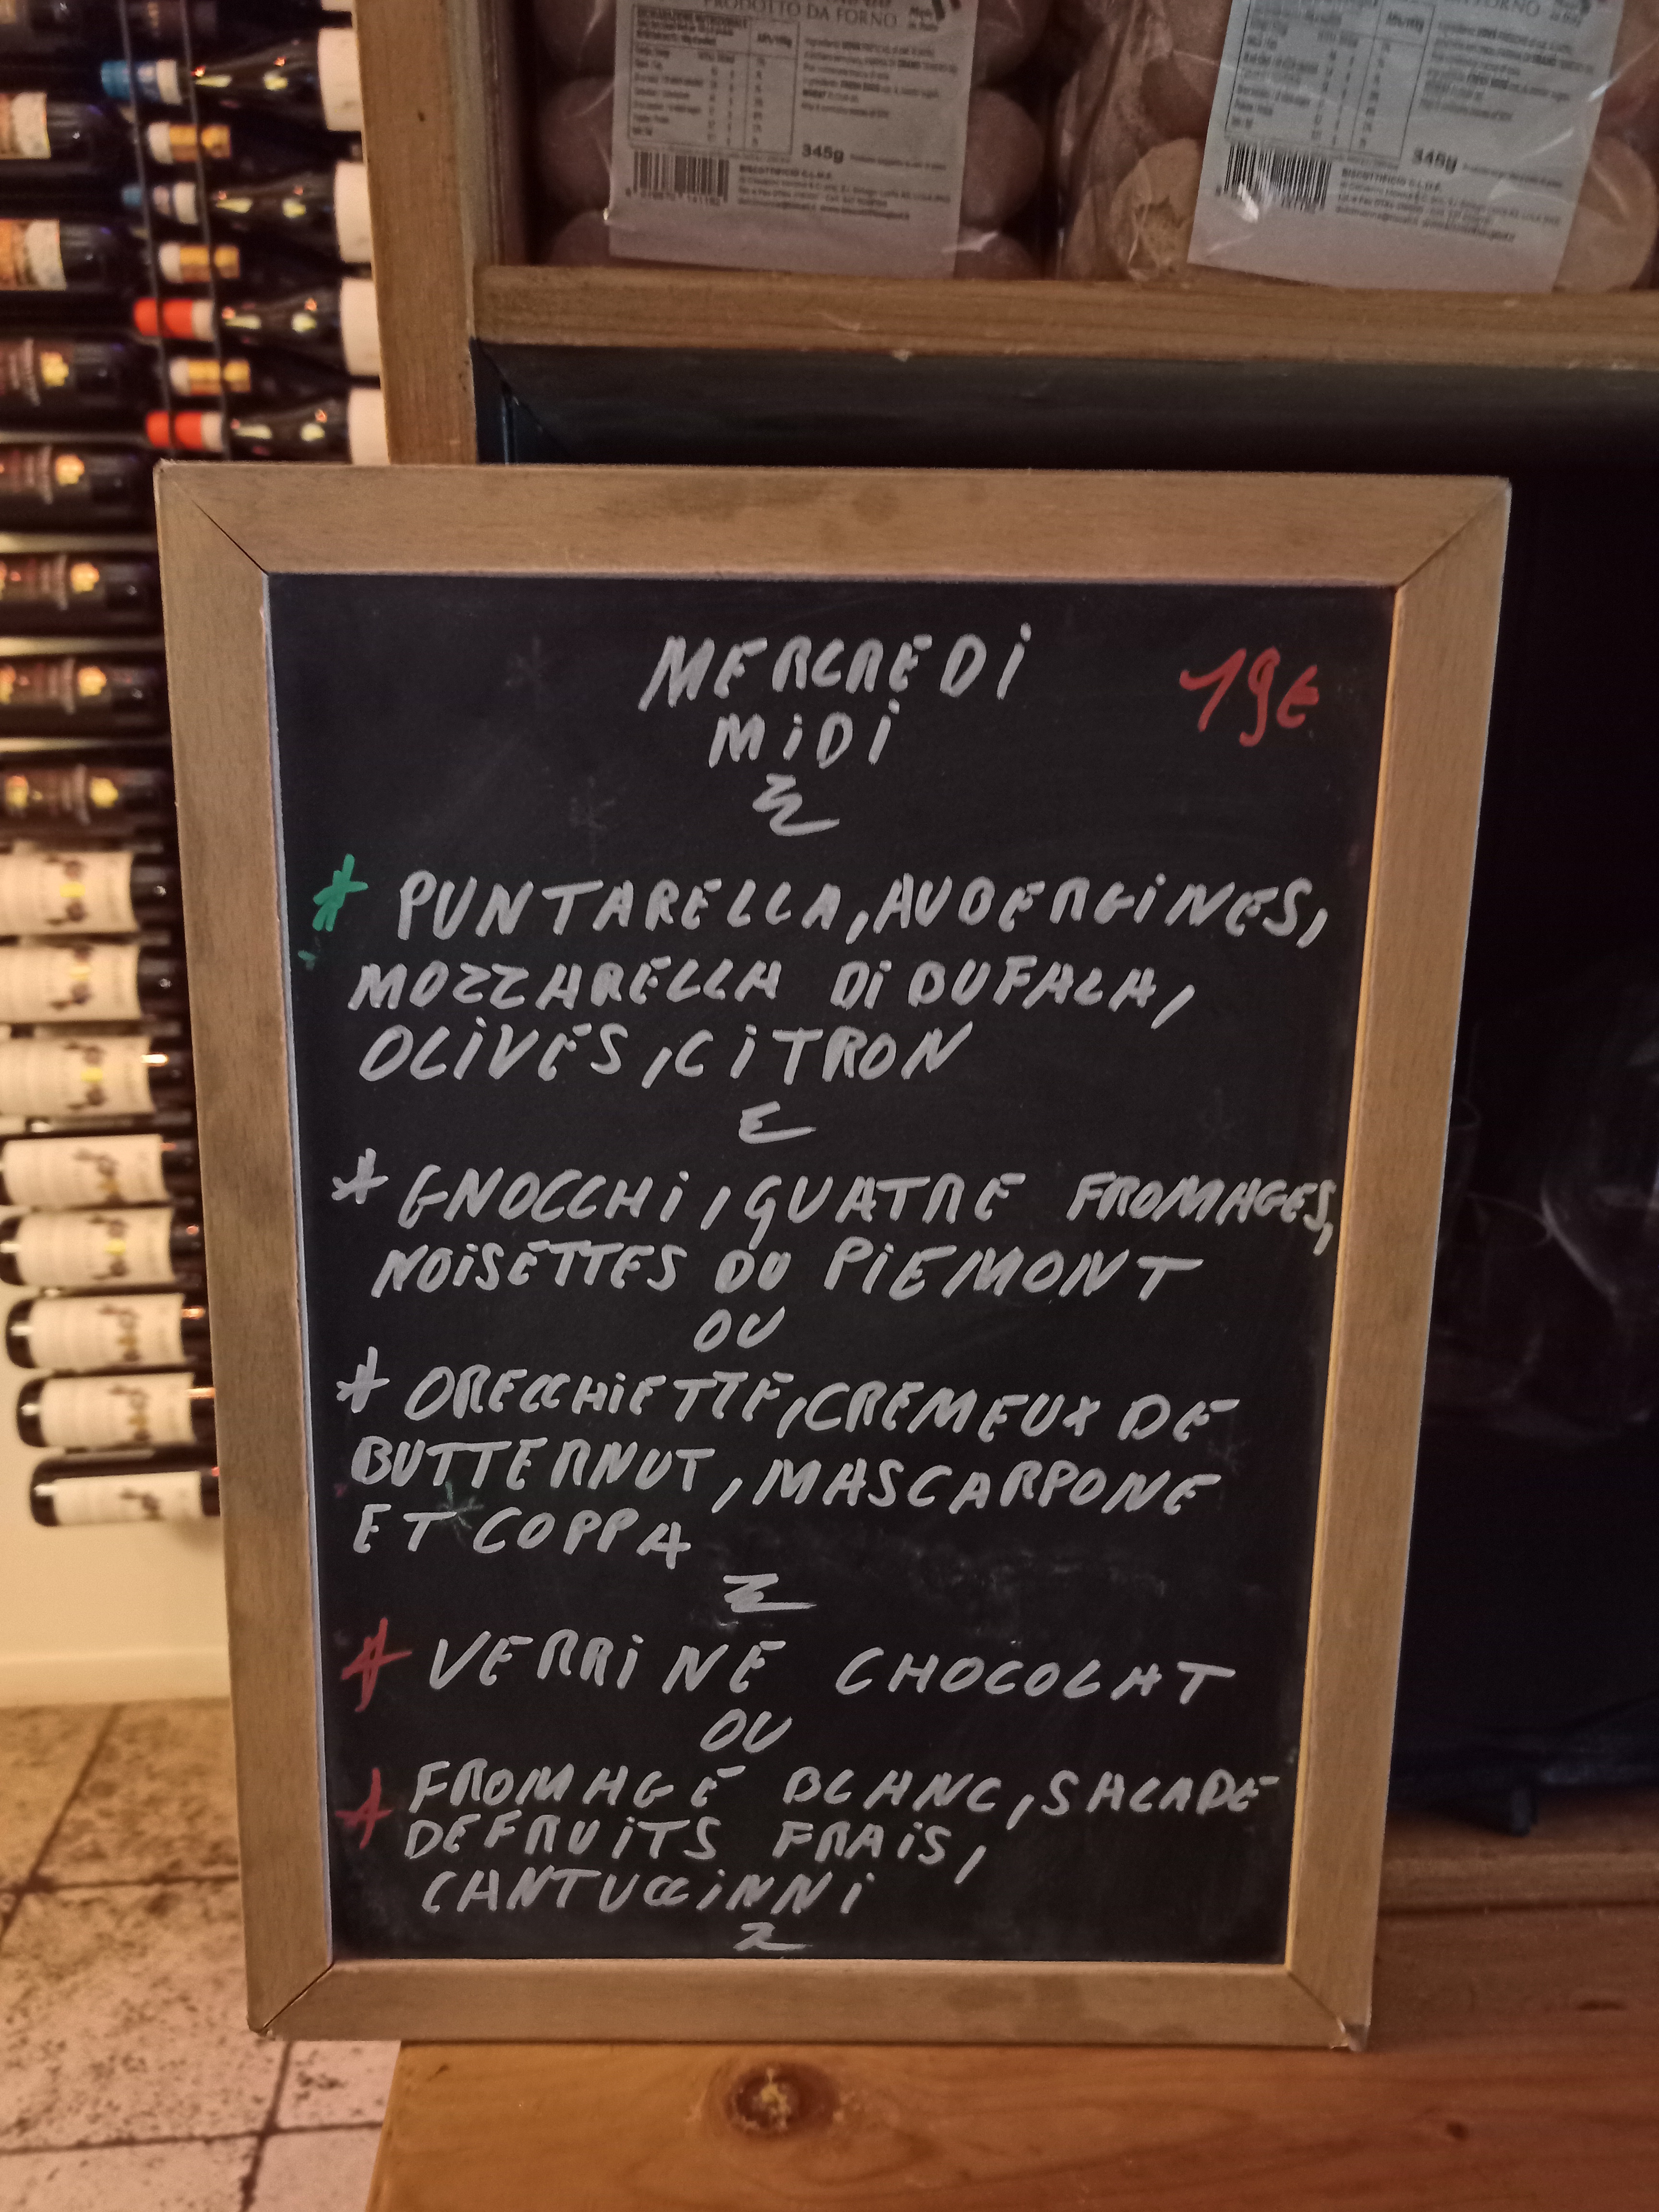 PRODOTTO DA FORNO
345g
BISCOTTIFICIO C.L.D.F.
345g
BISCOTTIFICIO C.L.D.F.
MERCREDI
19€
MIDI
* PUNTARELLA, AUBERGINES,
MOZZARELLA DI BUFALA,
OLIVES, CITRON
* GNOCCHI, QUATRE FROMAGES,
NOISETTES DU PIEMONT
OU
* ORECCHIETTE, CREMEUX DE
BUTTERNUT, MASCARPONE
ET COPPA
* VERRINE CHOCOLAT
OU
* FROMAGE BLANC, SALADE
DE FRUITS FRAIS,
CANTUCCINNI